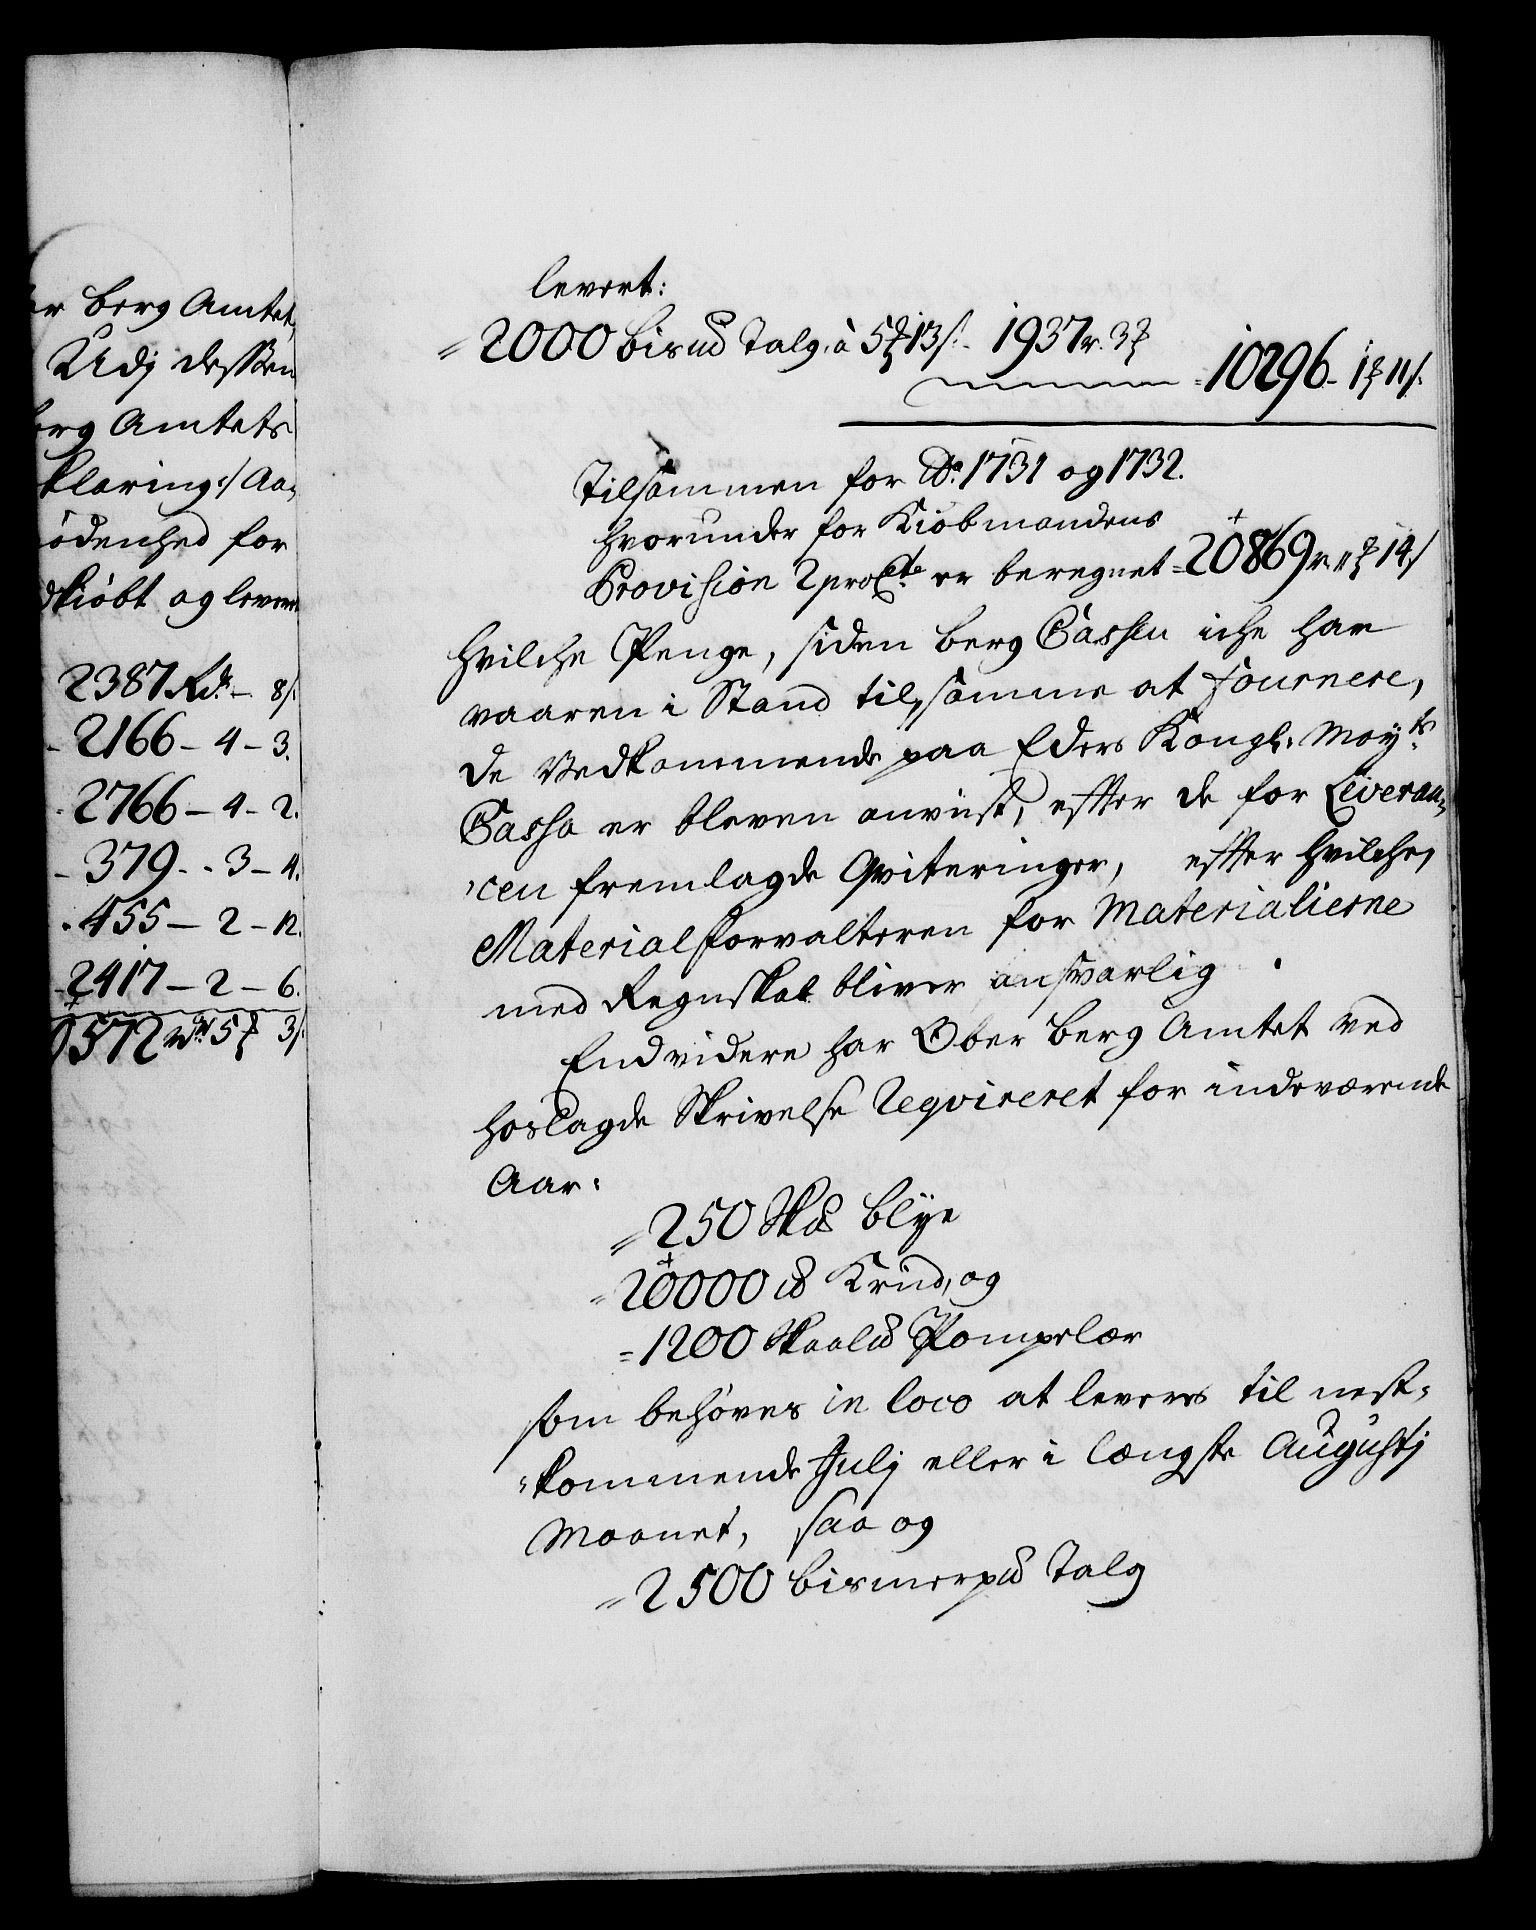 er Berg Amtet,
Udj dessen
erg Amtets
klaring:/ Aa,
ödenhed for
dkiöbt og lever
2387 Rdr. – 8 s:
- 2166 – 4 – 3.
- 2766 – 4 – 2.
- 379 - - 3 – 4.
- 455 – 2 – 12.
- 2417 – 2 – 6.
0572 rdr 5 ℥ 3 s:
levert:
= 2000 Bis℔ Talg. à 5 ℥ 13 s. - 1937 r. 3 ℥
= 10296 - 1 ℥ 11 s:
Tilsammen for Ao. 1731 og 1732.
hvorunder for Kiöbmandens
Provision 2 pro Cto er beregnet = 20869 r. „ ℥ 14 s
hvilche Penge, siden Berg Cassen iche har
vaaren i Stand til, samme at fournere,
de Vedkommende paa Eders Kongl: Mayts
Cassa er bleven anviist, effter de for Leveran,
,cen fremlagde Qviteringer, effter hvilche,
Materialforvalteren for Materialierne
med Regnskab bliver ansvarlig.
Endvidere har Ober Berg Amtet ved
hoslagde Skrivelse Reqvireret for indeværende
Aar:
= 250 Sk℔ Blÿe
= 20000 ℔ Krud, og
= 1200 Skaal℔ Pompelær
som behöves in loco at leveres til nest,
,kommende Julj eller i længste Augustj
Maanet, saa og
= 2500 Bismerp℔ Talg